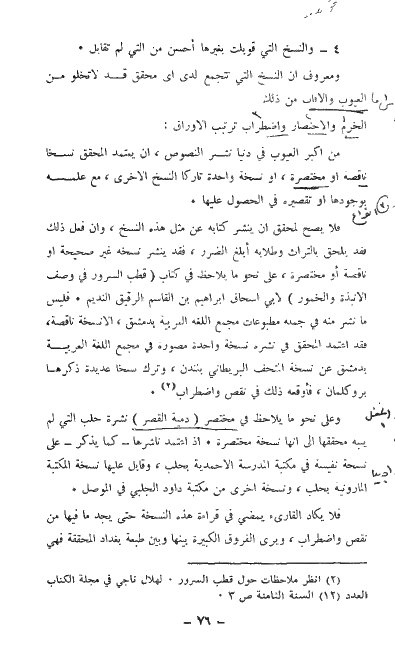 ٤ - والنسخ التي قوبلت بغيرها أحسن من التي لم تقابل ٠
ومعروف ان النسخ التي تتجمع لدى اى محقق قد لاتخلو من
العيوب والآفات من ذلك
الخرم والاختصار واضطراب ترتيب الاوراق :
من اكبر العيوب في دنيا نشر النصوص ، ان يعتمد المحقق نسخا
ناقصة او مختصرة ، او نسخة واحدة تاركا النسخ الاخرى ، مع علمه
بوجودها او تقصيره في الحصول عليها ٠
فلا يصح لمحقق ان ينشر كتابه عن مثل هذه النسخ ، وان فعل ذلك
فقد يلحق بالتراث وطلابه أبلغ الضرر ، فقد ينشر نسخه غير صحيحة او
ناقصة أو مختصرة ، على نحو ما يلاحظ في كتاب ( قطب السرور في وصف
الانبذة والخمور ) لابي اسحاق ابراهيم بن القاسم الرقيق النديم ٠ فليس
ما نشر منه في جمده مطبوعات مجمع اللغه العربية بدمشق ، الانسخة ناقصة،
فقد اعتمد المحقق في نشره نسخة واحدة مصورة في مجمع اللغة العربية
بدمشق عن نسخة المتحف البريطاني بلندن ، وترك نسخا عديدة ذكرها
بروكلمان ، فأوقعه ذلك في نقص واضطراب(٢) ٠
وعلى نحو ما يلاحظ في مختصر ( دمية القصر ) نشرة حلب التي لم
ينبه محققها الى انها نسخة مختصرة ٠ اذ اعتمد ناشرها - كما يذكر - على
نسخة نفيسة في مكتبة المدرسة الاحمدية بحلب ، وقابل عليها نسخة المكتبة
المارونية بحلب ، ونسخة اخرى من مكتبة داود الجلبي في الموصل ٠
فلا يكاد القارىء يمضي في قراءة هذه النسخة حتى يجد ما فيها من
نقص واضطراب ، ويرى الفروق الكبيرة بينها وبين طبعة بغداد المحققة فهي
(٢) انظر ملاحظات حول قطب السرور ٠ لهلال ناجي في مجلة الكتاب
العدد (١٢) السنة الثامنة ص ٣ ٠
- ٧٦ -